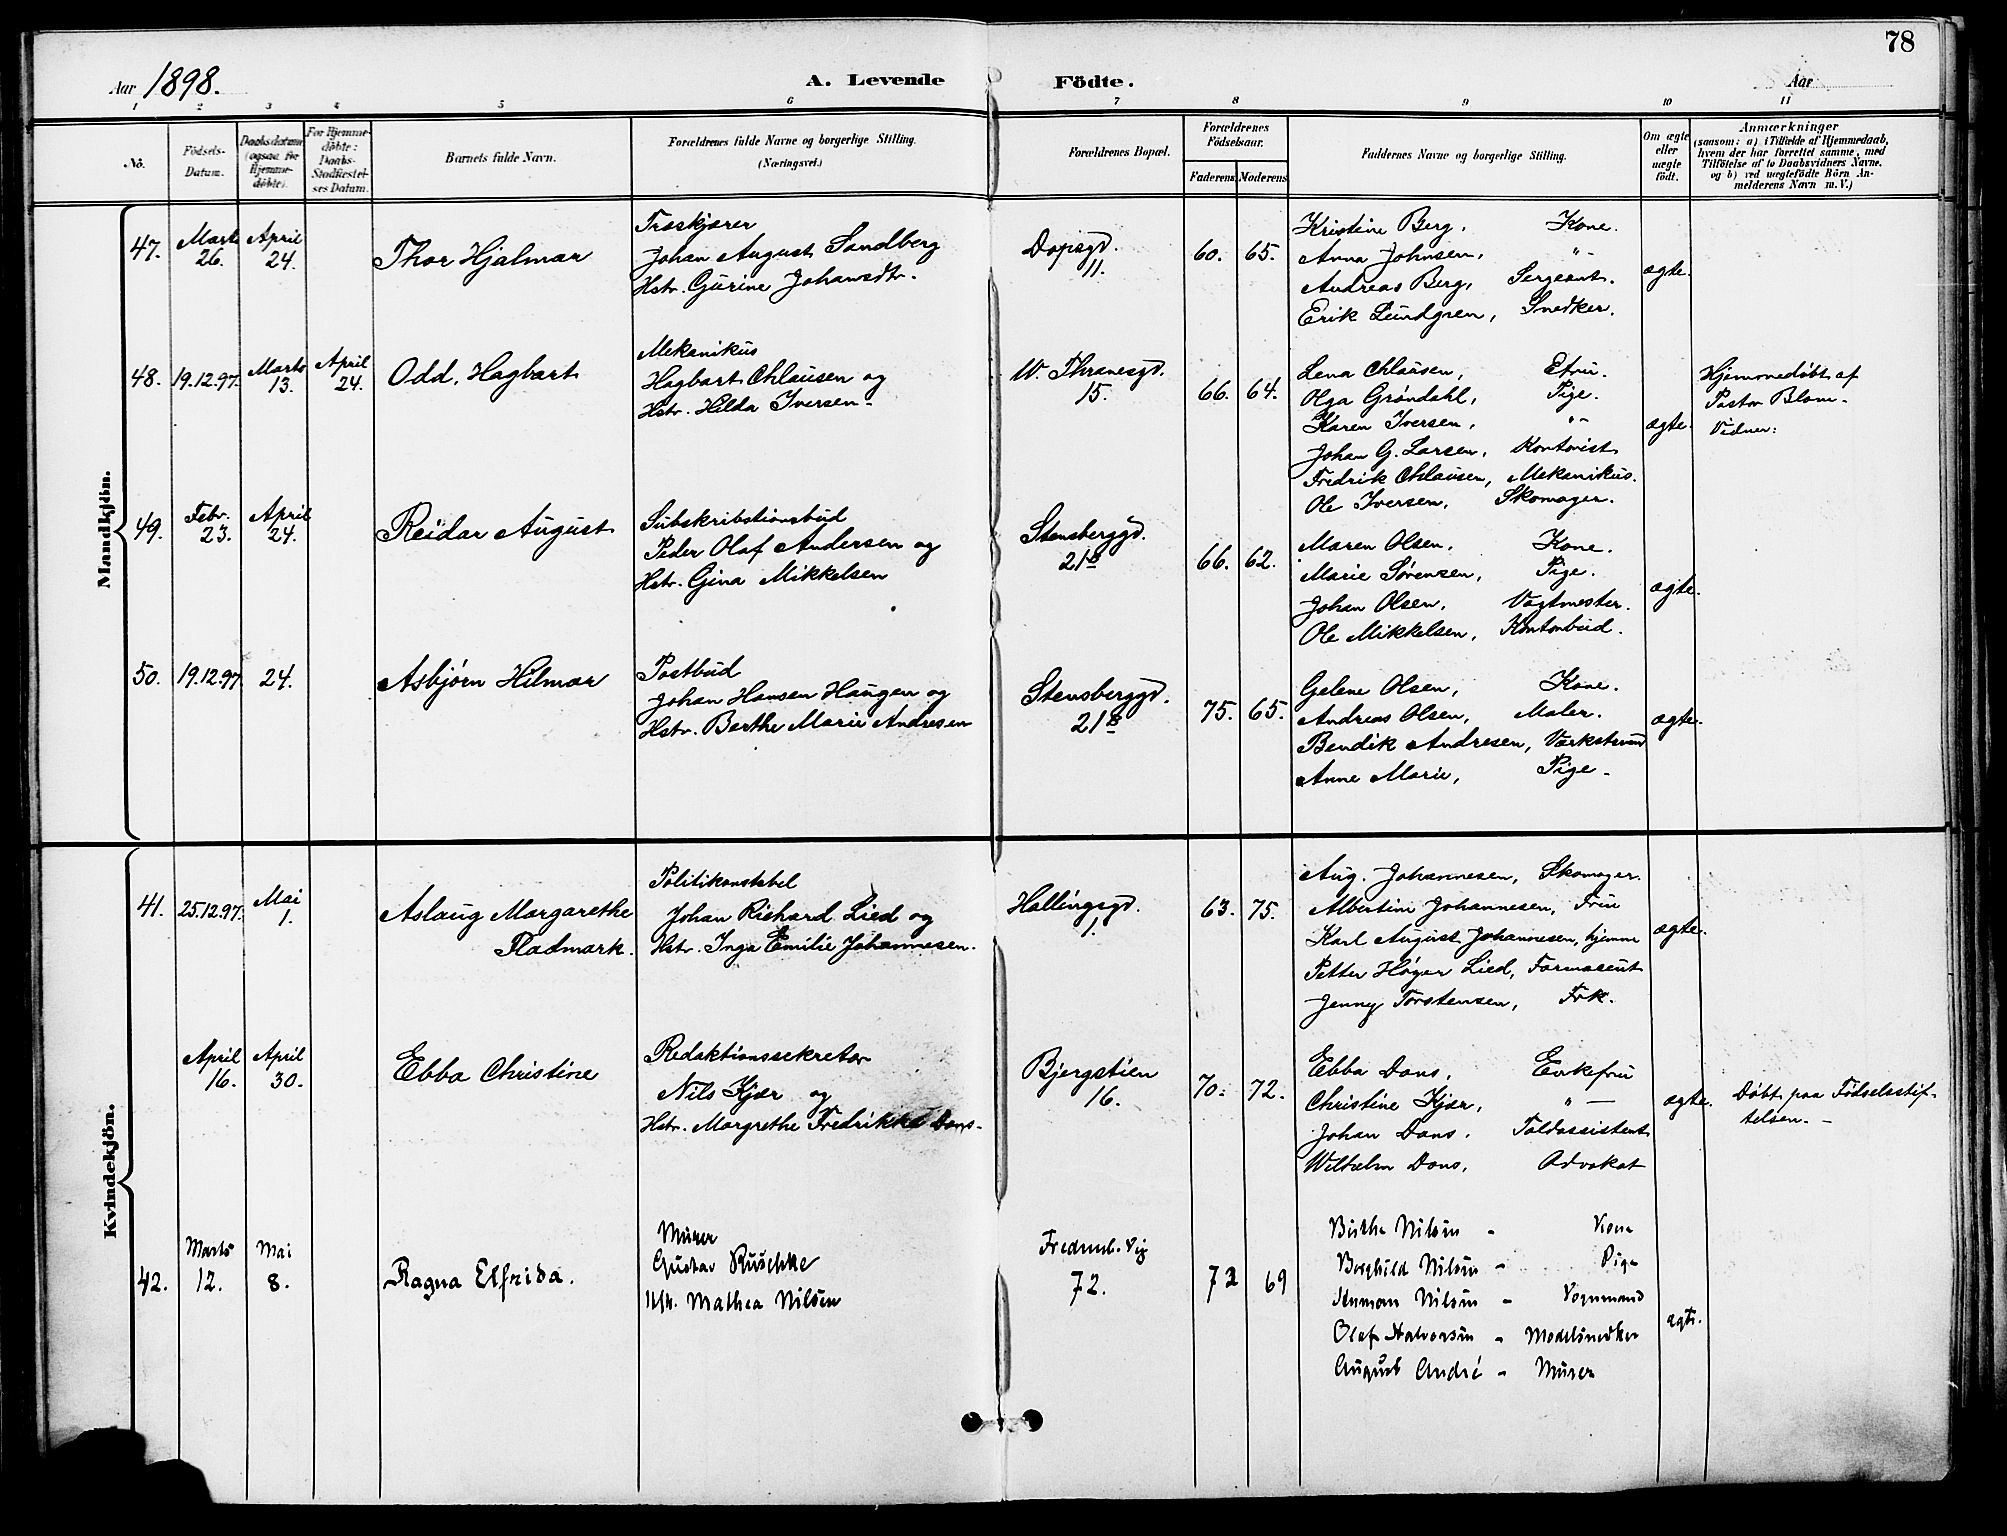 78
Aar 1898.
A. Levende Födte.
Aar
1 2 3 4 5 6 7 8 9 10 11
No.
Födsels-Datum.
Daabsdatum (ogsaa for Hjemmedöbte).
For Hjemmedöbte: Daabs-Stadfæstelses Datum.
Barnets fulde Navn.
Forældrenes fulde Navne og borgerlige Stilling.
(Næringsvei.)
Forældrenes Bopæl.
Forældrenes Födselsaar.
Faderens. Moderens.
Faddernes Navne og borgerlige Stilling.
Om ægte eller uægte födt.
Anmærkninger
(saasom: a) i Tilfælde af Hjemmedaab,
hvem der har forrettet samme, med
Tilföielse af to Daabsvidners Navne,
og b) ved uægtefödte Börn An-
melderens Navn m. V.)
Mandkjön.
47. Marts 26. April 24.
Thor Hjalmar
Træskjærer
Johan August Sandberg
Hstr. Gurine Johansdtr.
Dopsgd. 11.
60. 65.
Kristine Berg, Kone.
Anna Johnsen, "
Andreas Berg, Sergeant.
Erik Lundgren, Snedker.
ægte.
48. 19.12.97. Marts 13. April 24.
Odd. Hagbart
Mekanikus
Hagbart Chlausen og
Hstr. Hilda Iversen.
W. Thranesgd. 15.
66. 64.
Lena Chlausen, Efru.
Olga Grøndahl, Pige.
Karen Iversen, "
Johan G. Larsen, Kontorist
Fredrik Chlausen, Mekanikus.
Ole Iversen, Skomager.
ægte.
Hjemmedøbt af
Pastor Blom.
Vidner:
49. Febr. 23. April 24.
Reidar August
Subskribtionsbud
Peder Olaf Andersen og
Hstr. Gina Mikkelsen
Stensberggd. 21B
66. 62.
Maren Olsen, Kone.
Marie Sørensen, Pige.
Johan Olsen, Vagtmester.
Ole Mikkelsen, Kontorbud.
ægte.
50. 19.12.97. 24.
Asbjørn Hilmar
Postbud
Johan Hansen Haugen og
Hstr. Berthe Marie Andresen
Stensberggd. 21B
75. 65.
Gelene Olsen, Kone.
Andreas Olsen, Maler.
Bendik Andresen,
Anne Marie, Pige.
ægte.
Kvindekjön.
41. 25.12.97. Mai 1.
Aslaug Margarethe
Fladmark.
Politikonstabel
Johan Richard Lied og
Hstr. Inga Emilie Johannesen.
Hallingsgd. 1.
63. 75.
Aug. Johannesen, Skomager.
Albertine Johannesen, Fru
Karl August Johannesen, hjemme
Petter Høyer Lied, Farmaceut
Jenny Torstensen, Frk.
ægte.
April 16. April 30.
Ebba Christine
Redaktionssekretær
Nils Kjær og
Hstr. Margrethe Fredrikke Dons.
Bjergstien 16.
70. 72.
Ebba Dons, Enkefru
Christine Kjær, "
Johan Dons, Toldassistent
Wilhelm Dons, Advokat
ægte.
Døbt paa Fødselsstif-
telsen.
42. Marts 12. Mai 8.
Ragna Elfrida.
Murer
Gustav Ruschke
Hstr. Mathea Nilsen
72.
72 69
Nilsen - Kone
Borghild Nilsen - Pige
Herman Nilsen - Vognmand
Olaf Halvorsen - Modelsnedker
August André - Murer
ægte.